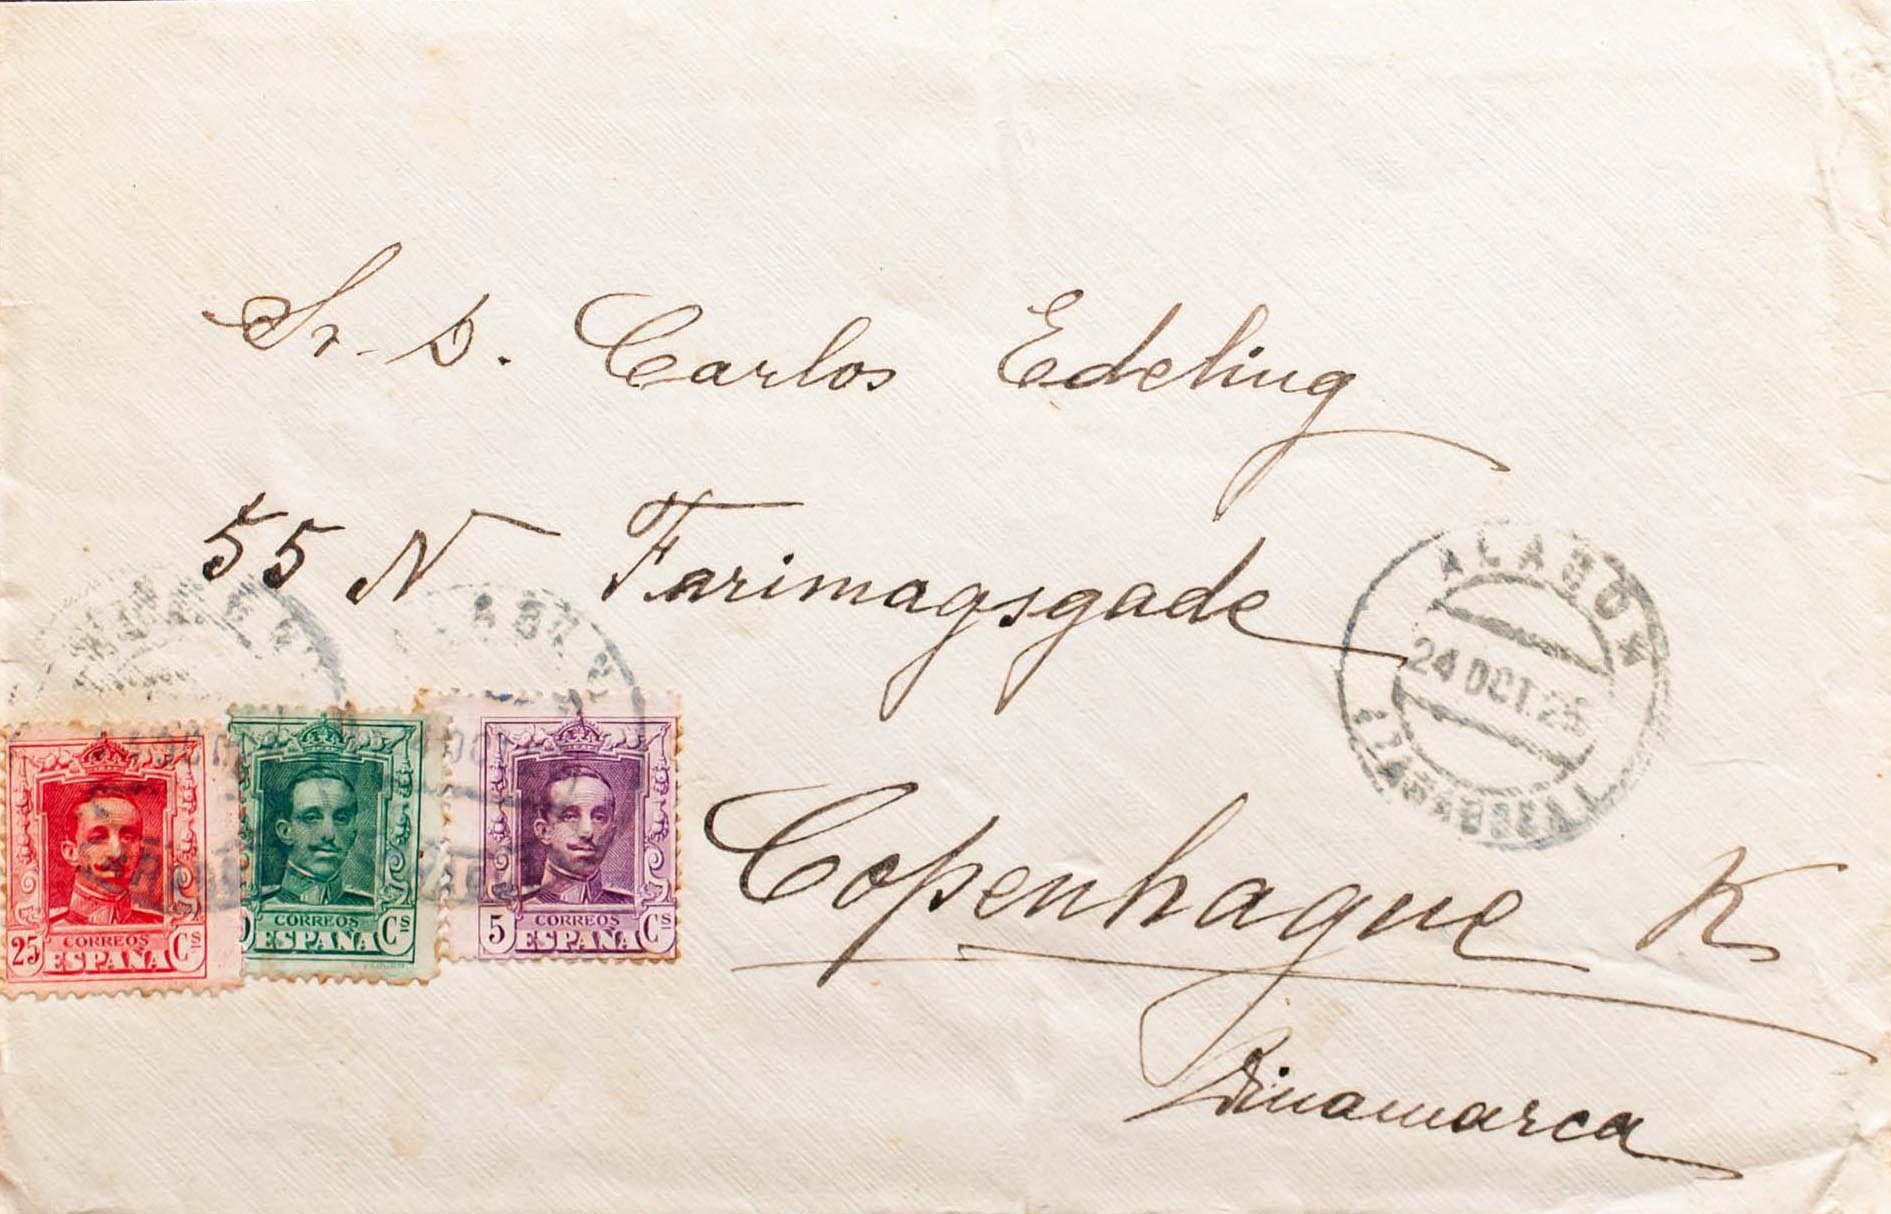 Sr. D. Carlos Edeling
55 N Farimagsgade
ALAGON
24 OCT. 25
(ZARAGOZA)
Copenhague K
Dinamarca
25 CORREOS Cs
ESPAÑA
CORREOS Cs
ESPAÑA
5 CORREOS Cs
ESPAÑA